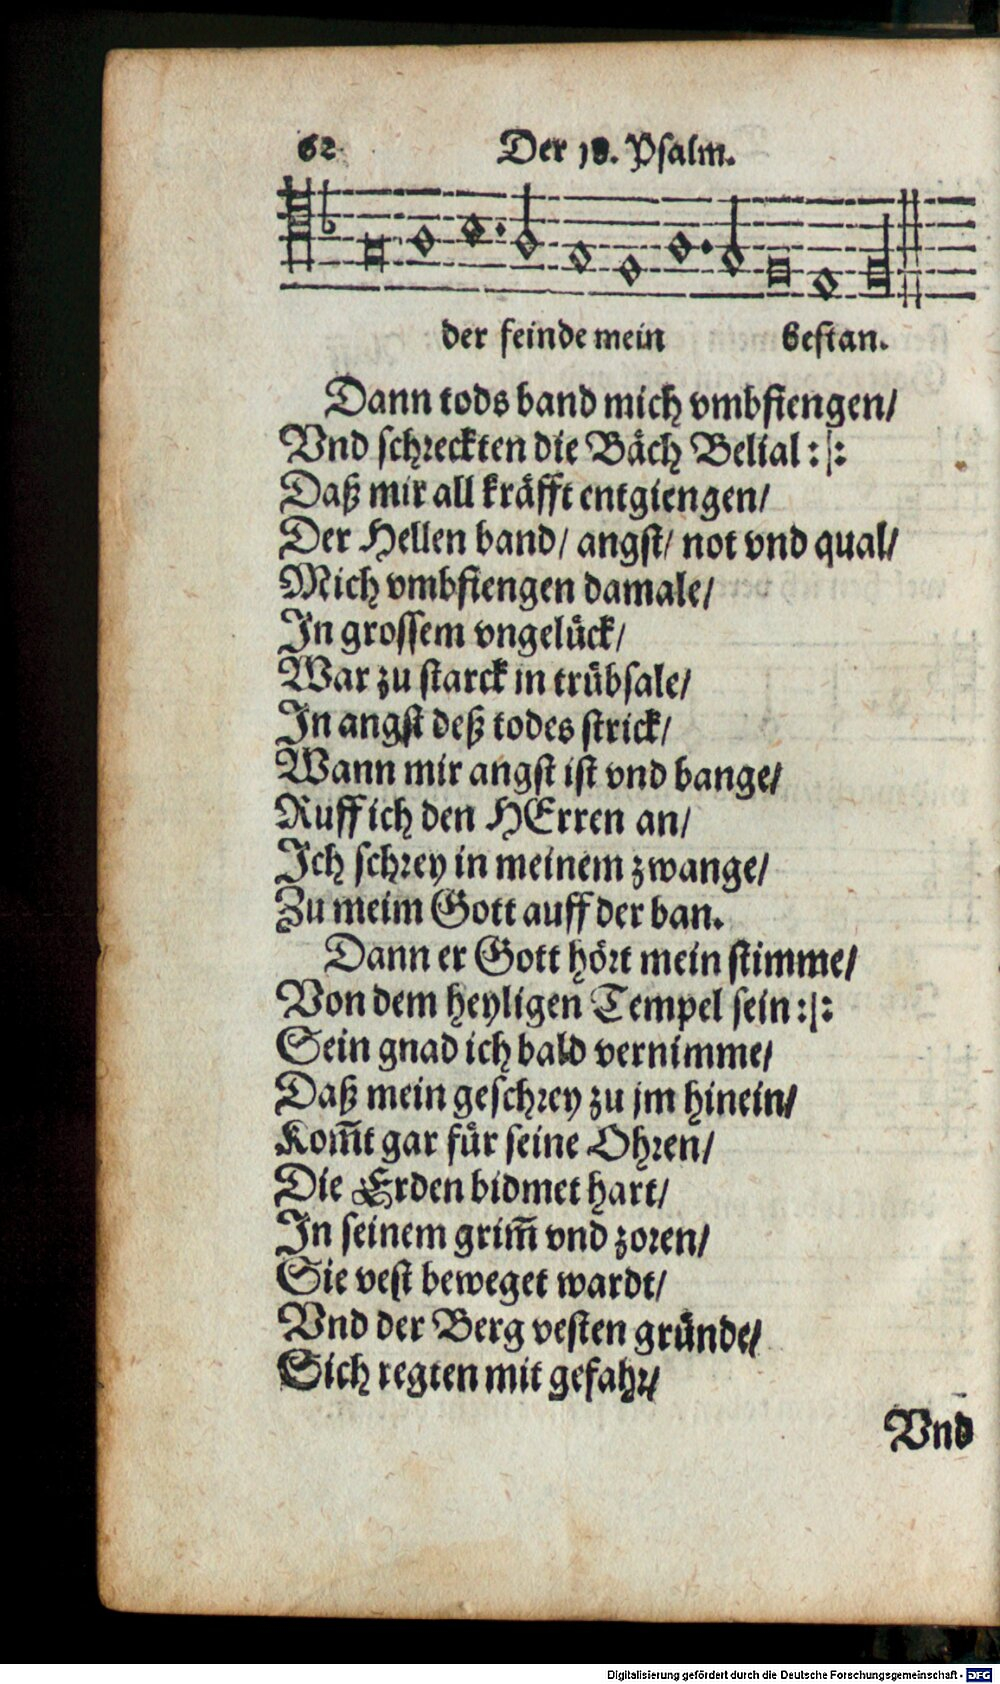 62 Der 18. Psalm.
der feinde mein bestan.
Dann tods band mich vmbfiengen/
Vnd schreckten die Bäch Belial :|:
Daß mir all kräfft entgiengen/
Der Hellen band/ angst/ not vnd qual/
Mich vmbfiengen damale/
In grossem vngelück/
War zu starck in trübsale/
In angst deß todes strick/
Wann mir angst ist vnd bange/
Ruff ich den HErren an/
Ich schrey in meinem zwange/
Zu meim Gott auff der ban.
Dann er Gott hört mein stimme/
Von dem heyligen Tempel sein :|:
Sein gnad ich bald vernimme/
Daß mein geschrey zu jm hinein/
Kom̃t gar für seine Ohren/
Die Erden bidmet hart/
In seinem grim̃ vnd zoren/
Sie vest beweget wardt/
Vnd der Berg vesten gründe/
Sich regten mit gefahr/
Vnd
Digitalisierung gefördert durch die Deutsche Forschungsgemeinschaft - DFG